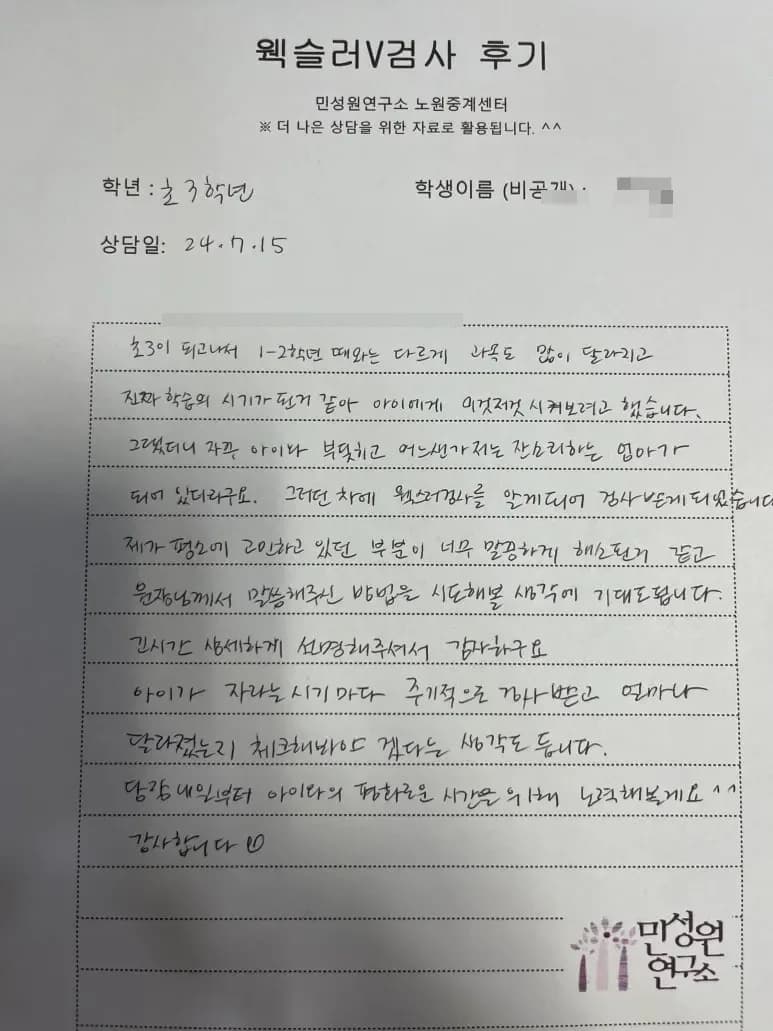 웩슬러V검사 후기
민성원연구소 노원중계센터
※ 더 나은 상담을 위한 자료로 활용됩니다. ^^
학년 : 초3학년
학생이름 (비공개) :
상담일: 24.7.15
초3이 되고나서 1-2학년 때와는 다르게 과목도 많이 달라지고
진짜 학습의 시기가 된거 같아 아이에게 이것저것 시켜보려고 했습니다.
그랬더니 자꾸 아이와 부딪히고 어느샌가 저는 잔소리하는 엄마가
되어 있더라구요. 그러던 차에 웩슬러검사를 알게되어 검사 받게되었습니다
제가 평소에 고민하고 있던 부분이 너무 말끔하게 해소된거 같고
원장님께서 말씀해주신 방법을 시도해볼 생각에 기대도됩니다.
긴시간 상세하게 설명해주셔서 감사하구요
아이가 자라는 시기마다 주기적으로 검사받고 얼마나
달라졌는지 체크해봐야 겠다는 생각도 듭니다.
당장 내일부터 아이와의 평화로운 시간을 위해 노력해볼게요 ^^
감사합니다
민성원
연구소